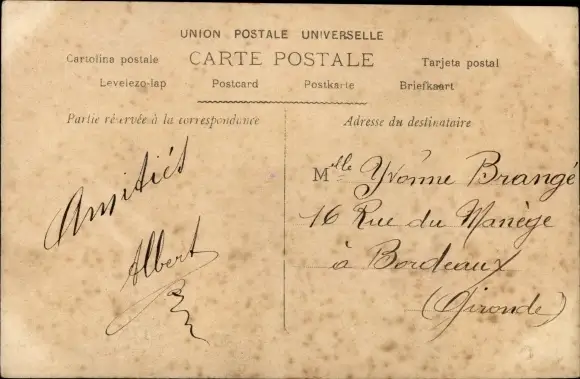 UNION POSTALE UNIVERSELLE
CARTE POSTALE
Cartolina postale
Tarjeta postal
Levelezo-lap
Postcard
Postkarte
Briefkaart
Partie réservée à la correspondance
Adresse du destinataire
Amitiés
Albert
Mlle Yvonne Brangé
16 Rue du Manège
à Bordeaux
(Gironde)